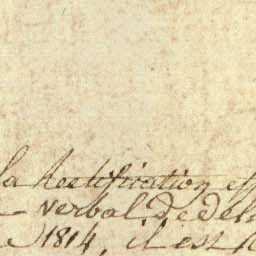 la Rectification eff
verbal de de
1814, il est